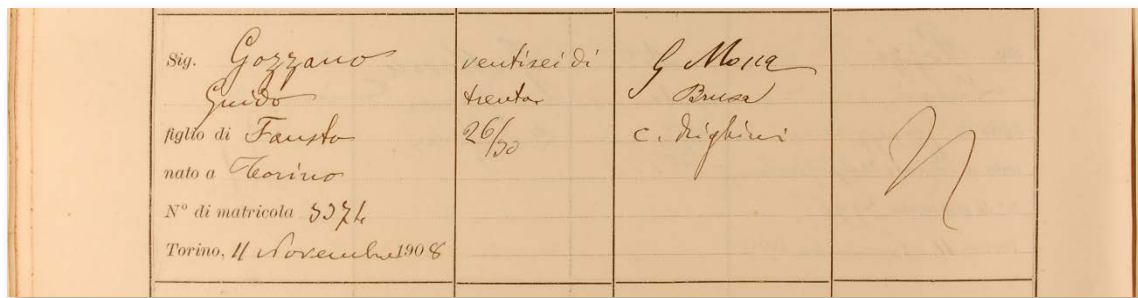 Sig. Gozzano
Guido
figlio di Fausto
nato a Torino
N° di matricola
Torino, 11 Novembre 1908
ventisei di
trenta
26/30
G Mosca
Brusa
C.